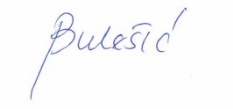 Bulešić